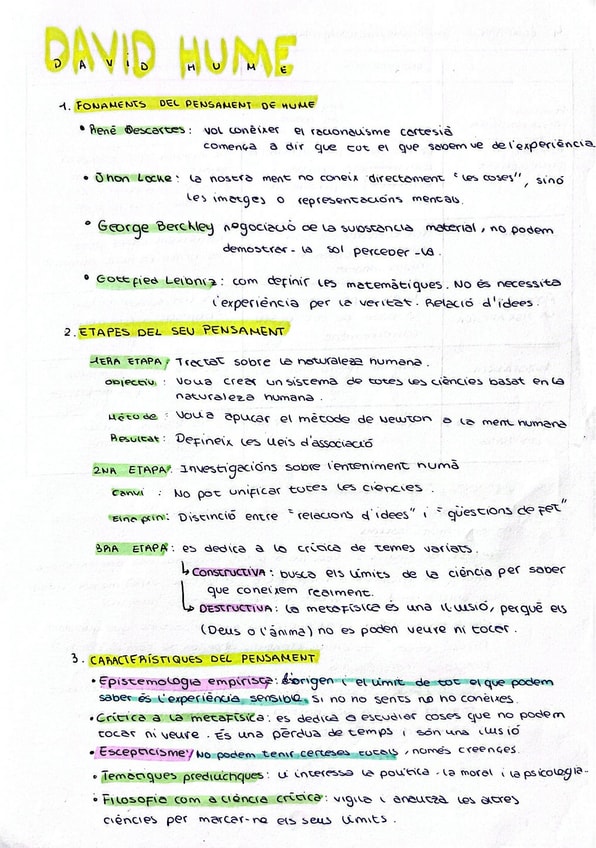 DAVID HUME
DAVID HUME
1. FONAMENTS DEL PENSAMENT DE HUME
• René Descartes: vol conèixer el racionalisme cartesià
comença a dir que tot el que sabem ve de l'experiència
• Jhon Locke: la nostra ment no coneix directament "les coses", sinó
les imatges o representacions mentals.
• George Berckley negociació de la substància material, no podem
demostrar-la sol perceber-la.
• Gottfied Leibniz: com definir les matemàtiques. No és necessita
l'experiència per la veritat. Relació d'idees.
2. ETAPES DEL SEU PENSAMENT
1ERA ETAPA: Tractat sobre la naturalesa humana.
objectiu: Volia crear un sistema de totes les ciències basat en la
naturalesa humana.
Mètode: Volia aplicar el mètode de Newton a la ment humana
Resultat: Defineix les lleis d'associació
2NA ETAPA: Investigacións sobre l'enteniment humà
Canvi: No pot unificar totes les ciències.
Eina prin: Distinció entre "relacions d'idees" i "qüestions de fet"
3RA ETAPA: es dedica a la crítica de temes variats.
↳ CONSTRUCTIVA: busca els límits de la ciència per saber
que coneixem realment.
↳ DESTRUCTIVA: la metafísica és una il·lusió, perquè els
(Deus o l'ànima) no es poden veure ni tocar.
3. CARACTERÍSTIQUES DEL PENSAMENT
• Epistemologia empirista: l'origen i el límit de tot el que podem
saber és l'experiència sensible. Si no no sents no no conèixes.
• Crítica a la metafísica: es dedica a estudiar coses que no podem
tocar ni veure. És una pèrdua de temps i són una ilusió
• Escepticisme: No podem tenir certeses totals, només creences.
• Temàtiques predilectiques: li interessa la política. la moral i la psicologia.
• Filosofia com a ciència crítica: vigila i analitza les altres
ciències per marcar-ne els seus límits.